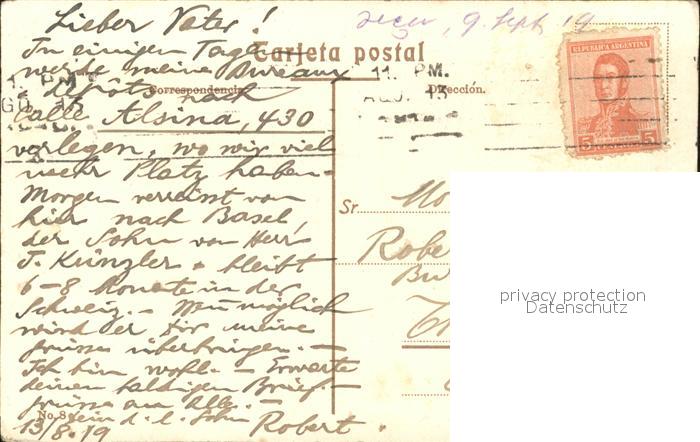 Lieber Vater!
reçu, 9. Sept 19
In einigen Tagen
Tarjeta postal
REPUBLICA ARGENTINA
werde meine Bureaux
11. PM.
11. PM.
Depôts nach
Correspondencia
AGO. 13
Dirección.
Calle Alsina, 430
5
5
verlegen, wo wir viel
mehr Platz haben.
Morgen verreist von
Sr.
hier nach Basel,
der Sohn von Herrn
Rober
J. Künzler & bleibt
6-8 Monate in der
privacy protection
Datenschutz
Schweiz. - Womöglich
wird er Dir meine
Grüsse überbringen. -
Ich bin wohl. - Erwarte
deinen baldigen Brief. -
Grüsse an Alle. -
No. 8
dein d. l. Sohn
13/8.19
Robert.